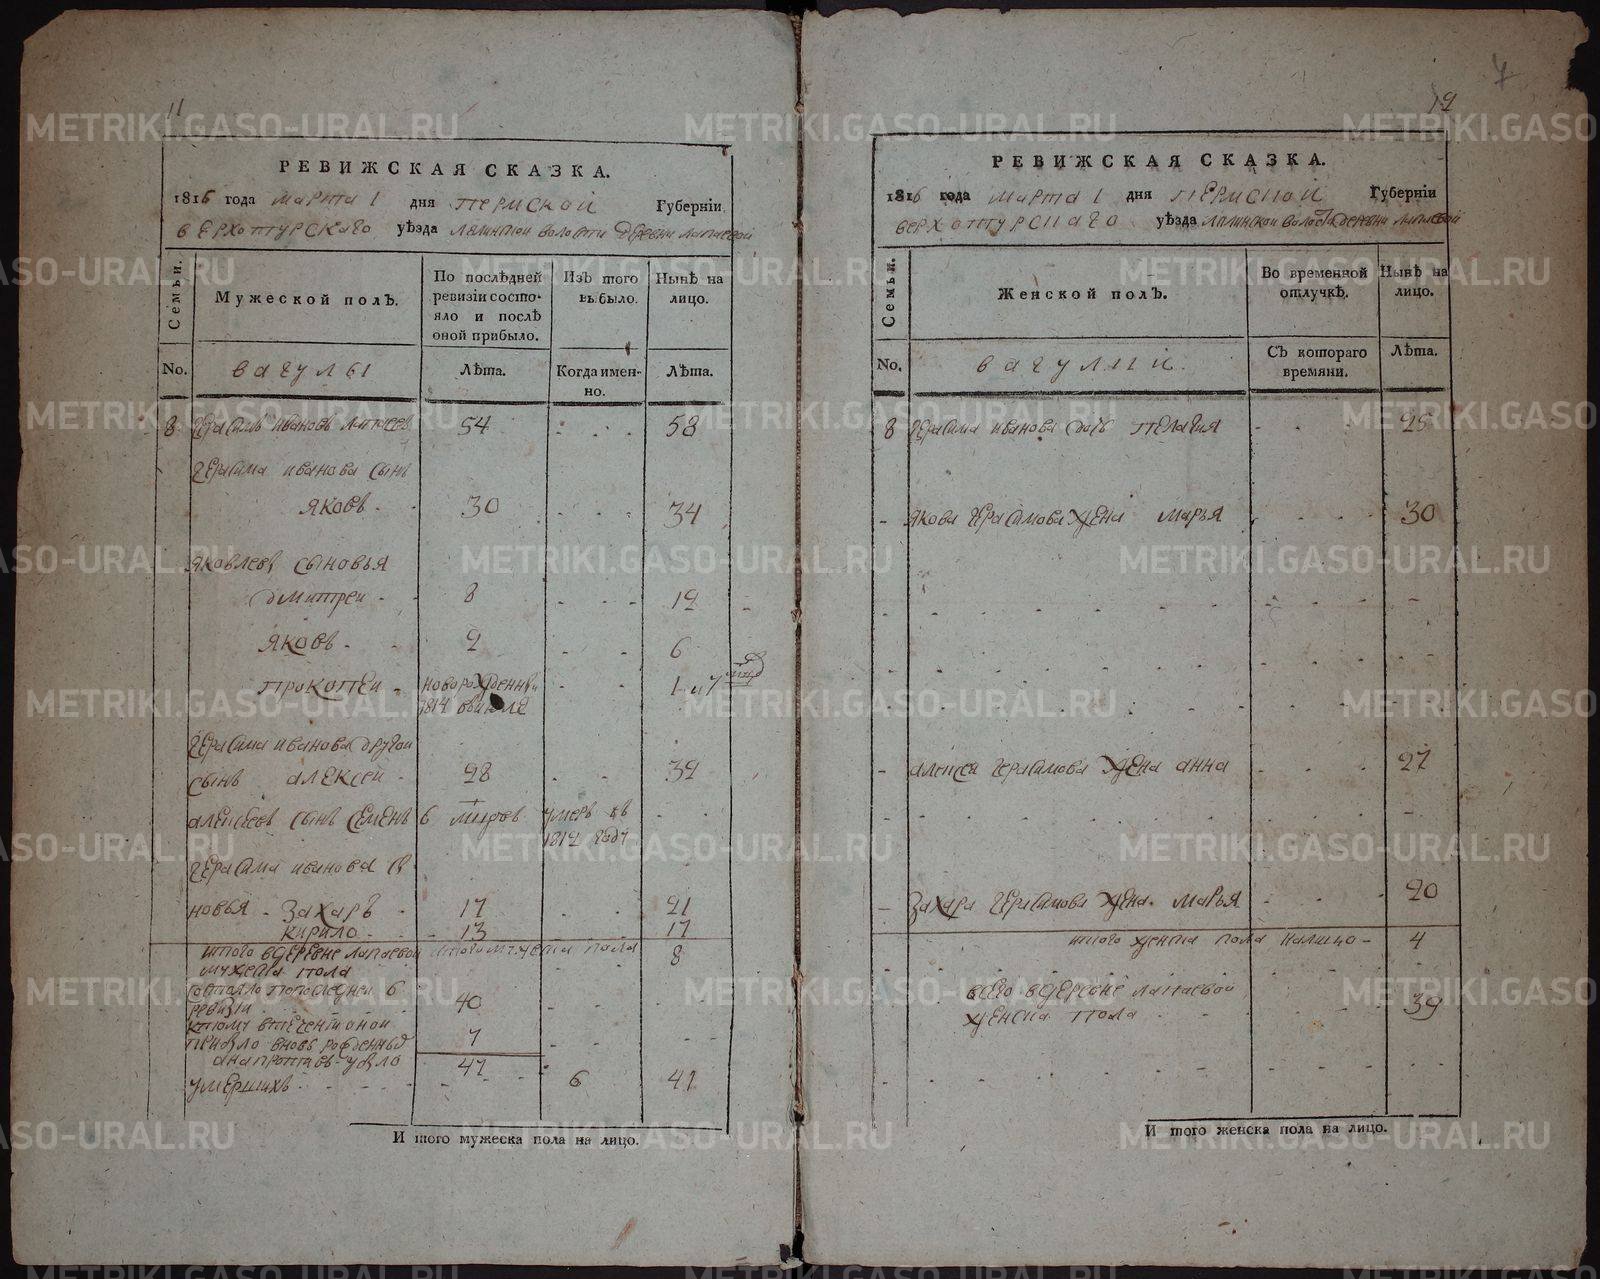 11
РЕВИЖСКАЯ СКАЗКА.
1816 года марта 1 дня пермской Губерніи
верхотурскаго уѣзда лялинской волости деревни лапаевой
Семьи.
Мужеской полъ.
По послѣдней ревизіи состояло и послѣ оной прибыло.
Изъ того выбыло.
Нынѣ на лицо.
No.
вагулы
Лѣта.
Когда именно.
Лѣта.
8 герасимъ ивановъ лапаевъ 54 58
герасима иванова сынъ
яковъ 30 34
яковлевы сыновья
дмитреи 8 12
яковъ 2 6
прокопеи новорожденныи 1 и 7
1814 в июле
герасима иванова другои
сынъ алексеи 28 32
алексеевъ сынъ семенъ 6 умеръ въ
1812 году
герасима иванова сы
новья захаръ 17 21
кирило 13 17
итого в деревне лапаевой итого мужеска пола 8
мужеска пола
состояло по последней 6
ревизи 40
к тому в течении оной
вновь рожденныхъ 7
а напротивъ убыло 47
умершихъ 6 41
И того мужеска пола на лицо.
7
12
РЕВИЖСКАЯ СКАЗКА.
1816 года марта 1 дня пермской Губерніи
верхотурскаго уѣзда лялинской волости деревни лапаевой
Семьи.
Женской полъ.
Во временной отлучкѣ.
Нынѣ на лицо.
No.
вагулки.
Съ котораго времяни.
Лѣта.
8 герасима иванова дочь пелагия 25
якова герасимова жена марья 30
алексея герасимова жена анна 27
захара герасимова жена марья 20
итого женска пола налицо 4
всего в деревне лапаевой
женска пола 39
И того женска пола на лицо.
METRIKI.GASO-URAL.RU